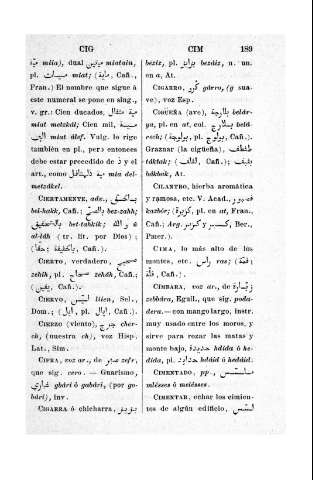 CIG
CIM
189
مية miía), dual ميتين miatain,
pl. ميات miat; (ماية, Cañ.,
Fran.) El nombre que sigue á
este numeral se pone en sing.,
v. gr.: Cien ducados, مية مثقال
miat metzkál; Cien mil, مية
الف miat álef. Vulg. lo rigo
también en pl., pero entonces
debe estar precedido de د y el
art., como مية دلمثاقل mia del-
metzákel.
CIERTAMENTE, adv., بالحق
bel-hakk, Cañ.; بالصح bez-zahh;
بالتحقيق bet-tahkik; و الله u
al-láh (tr. lit. por Dios);
(حقا; بالحقيقة, Cañ.).
CIERTO, verdadero, صحيح
zehih, pl. صحاح zeháh, Cañ.;
(يقين, Cañ.).
CIERVO, ليين liien, Sel.,
Dom.; (ايل, pl. ايال, Cañ.).
CIERZO (viento), جرج cher-
ch, (nuestra ch), voz Hisp.
Lat., Sim.
CIFRA, voz ar., de صفر zefr,
que sig. cero. — Guarismo,
غباري gbári ó gabári, (por go-
bári), inv.
CIGARRA ó chicharra, بزيز
beziz, pl. بزايز bezáiz, n. un.
en a, At.
CIGARRO, گرو gárro, (g sua-
ve), voz Esp.
CIGÜEÑA (ave), بلارجة belár-
ya, pl. en at, col. بلارج belá-
rech; (بولوجة, pl. بولوج, Cañ.).
Graznar (la cigüeña), طقطق
táktak; (لقلق, Cañ.); بقبق
bákbak, At.
CILANTRO, hierba aromática
y ramosa, etc. V. Acad., قصبور
kazbór; (كزبرة, pl. en at, Fran.,
Cañ.; Arg. كزبر y كسبر, Ber.,
Puer.).
CIMA, lo más alto de los
montes, etc. راس ras; (قمة;
قلة, Cañ.).
CIMBARA, voz ar., de زبّارة
zebbára, Eguíl., que sig. poda-
dera. — con mango largo, instr.
muy usado entre los moros, y
sirve para rozar las matas y
monte bajo, حديدة hdida ó he-
dida, pl. حدايد hdáid ó hedáid.
CIMENTADO, pp., ملسّس
mlésses ó melésses.
CIMENTAR, echar los cimien-
tos de algún edificio, لسّس